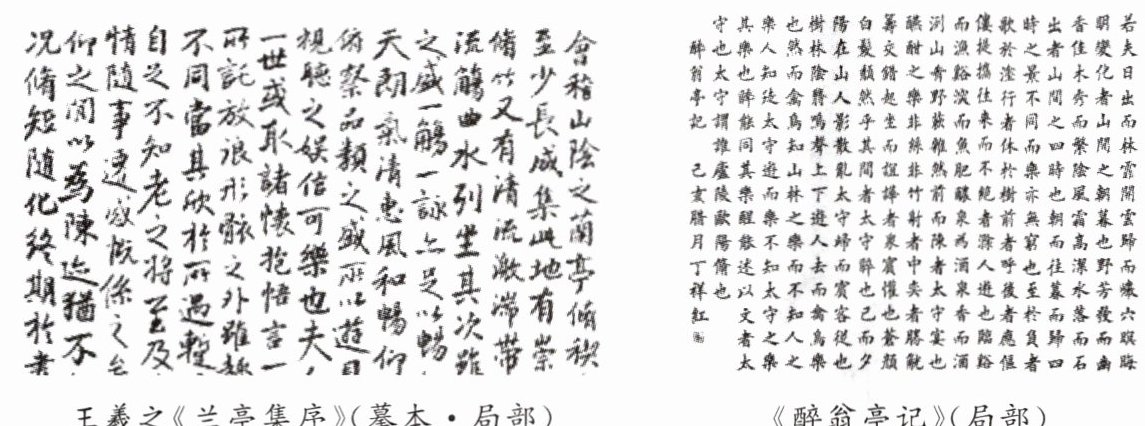 會稽山陰之蘭亭脩禊
至少長咸集此地有崇
脩竹又有清流激湍帶
流觴曲水列坐其次雖
之盛一觴一詠亦足以暢
天朗氣清惠風和暢仰
俯察品類之盛所以遊目
視聽之娛信可樂也夫人
一世或取諸懷抱悟言一
所託放浪形骸之外雖趣
不同當其欣於所遇暫
自足不知老之將至及
情隨事遷感慨係之矣
仰之閒以為陳迹猶不
況脩短隨化終期於盡
王羲之《兰亭集序》(摹本·局部)
若夫日出而林霏開雲歸而巖穴暝晦
明變化者山間之朝暮也野芳發而幽
香佳木秀而繁陰風霜高潔水落而石
出者山間之四時也朝而往暮而歸四
時之景不同而樂亦無窮也至於負者
歌於塗行者休於樹前者呼後者應傴
僂提攜往來而不絕者滁人遊也臨谿
而漁谿深而魚肥釀泉為酒泉香而酒
洌山肴野蔌雜然前而陳者太守宴也
醼酣之樂非絲非竹射者中奕者勝觥
籌交錯起坐而諠譁者衆賓懽也蒼顏
白髮頹然乎其間者太守醉也已而夕
陽在山人影散亂太守歸而賓客從也
樹林陰翳鳴聲上下遊人去而禽鳥樂
也然而禽鳥知山林之樂而不知人之
樂人知從太守遊而樂不知太守之樂
其樂也醉能同其樂醒能述以文者太
守也太守謂誰廬陵歐陽脩也
醉翁亭記 己亥腊月丁祥紅
《醉翁亭记》(局部)